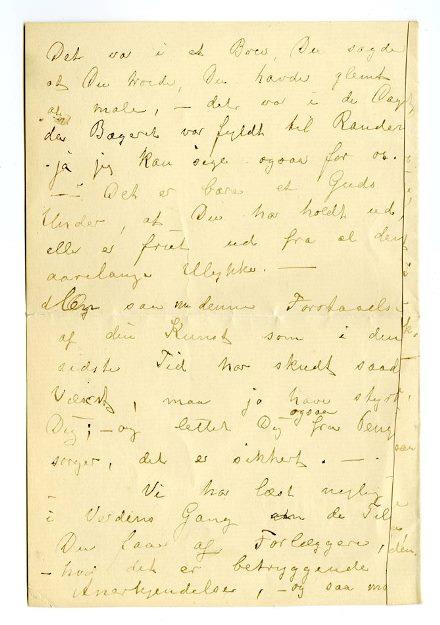 Det var i et Brev, Du sagde
at Du troede, Du havde glemt
at male, – det var i de Dage,
da Bægeret var fyldt til Randen
– ja jeg kan sige ogsaa for os.
– Det er bare et Guds
Under, at Du har holdt ud,
eller er friet ud fra al den
aarelange Ulykke. –
Men saa denne Forstaaelse
af din Kunst som i den
sidste Tid har skudt saad
Vækst, maa jo have styrk
Dig; – og lettet Dig ogsaa fra Peng
sorger, det er sikkert. –
– Vi har læst nylig
i Verdens Gang de Til
Du faar af Forlæggere,
– hvor det er betryggende
Anerkjendelse, – og saa må